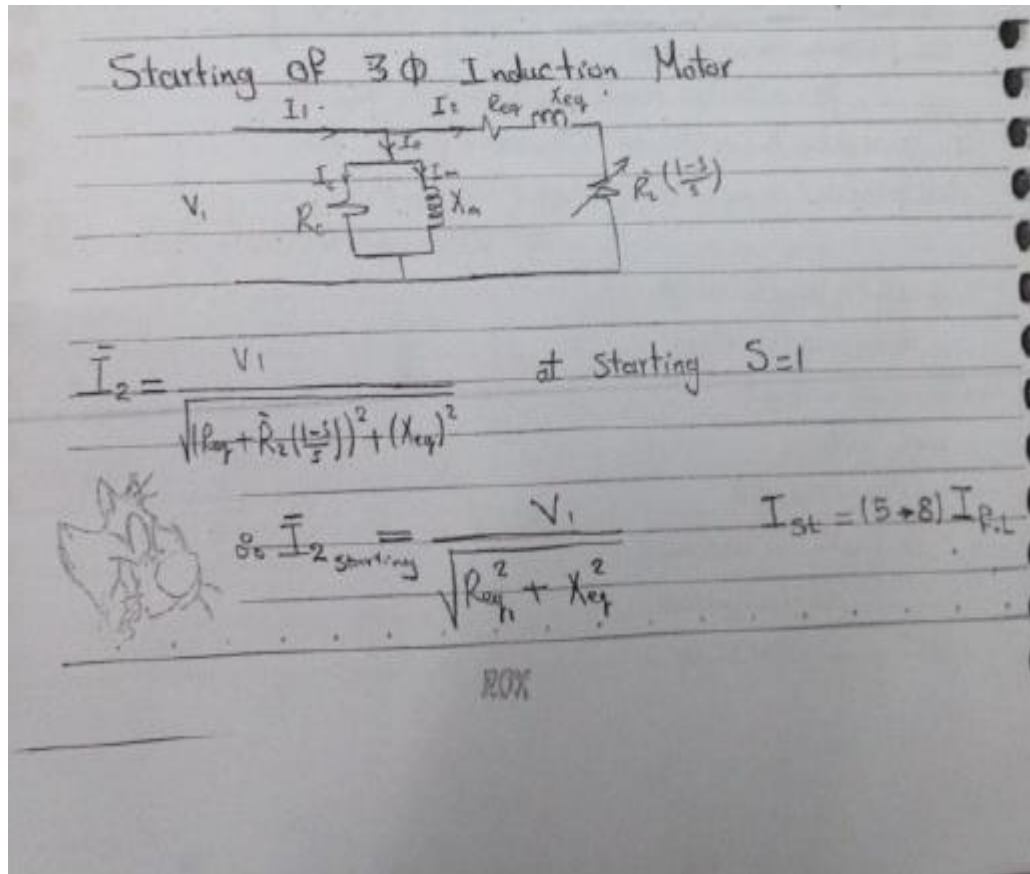 Starting Of 3Φ Induction Motor
I₁ I₂ Req Xeq
I₀
Ic Im
V₁ Rc Xm R̄₂(1-S/S)
Ī₂ = V₁ / √((Req + R̄₂(1-S/S))² + (Xeq)²) at starting S=1
∴ Ī₂ starting = V₁ / √(Req₁² + Xeq²) Ist = (5→8) I F.L
ROX